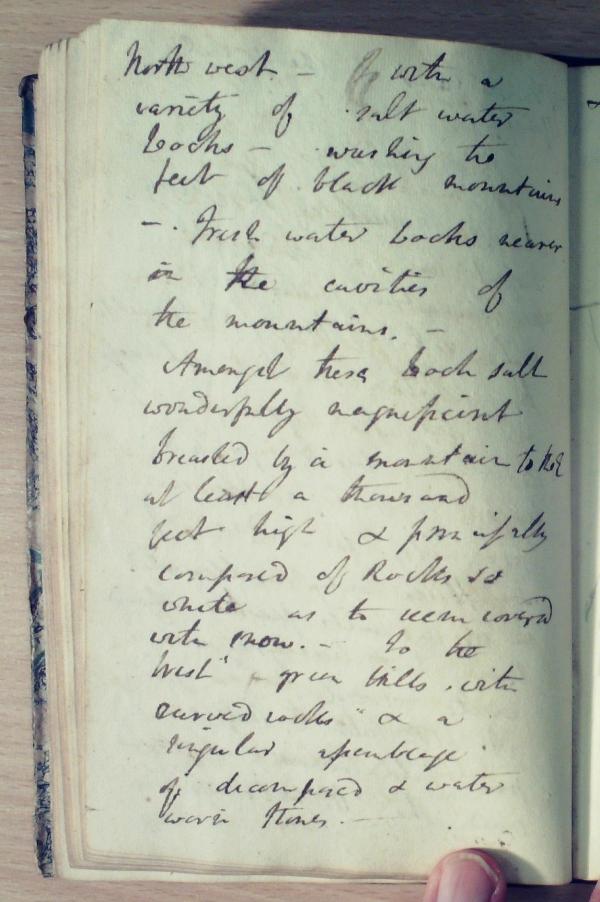 North west — with a
variety of salt water
Lochs — washing the
feet of black mountains
—. Fresh water Lochs nearer
in the cavities of
the mountains. —
Amongst these Loch salt
wonderfully magnificent
breasted by a mountain to the E
at least a thousand
feet high & principally
composed of Rocks so
white as to seem covered
with snow. — To the
West green hills with
curved rocks & a
singular assemblage
of decomposed & water
worn stones. —